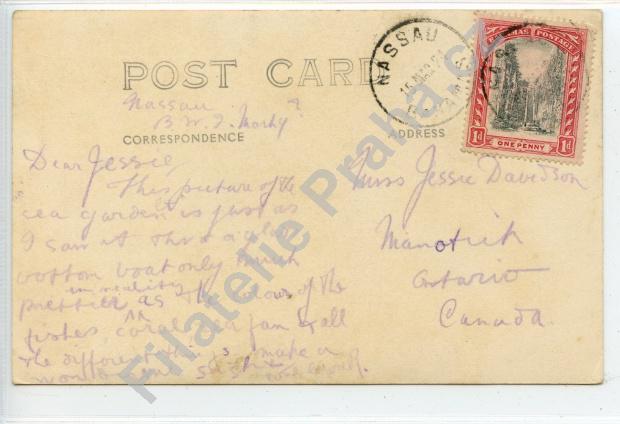 NASSAU
BAHAMAS POSTAGE
1d ONE PENNY 1d
POST CARD
Nassau
B.W.I.
CORRESPONDENCE
ADDRESS
Dear Jessie,
This picture of the
sea gardens is just as
I saw it thro a glass
bottom boat only much
prettier in reality as the colour of the
fishes, coral, sea fan & all
the different things make a
wonderful sight
Miss Jessie Davidson
Manotick
Ontario
Canada.
Filatelie Praha.cz